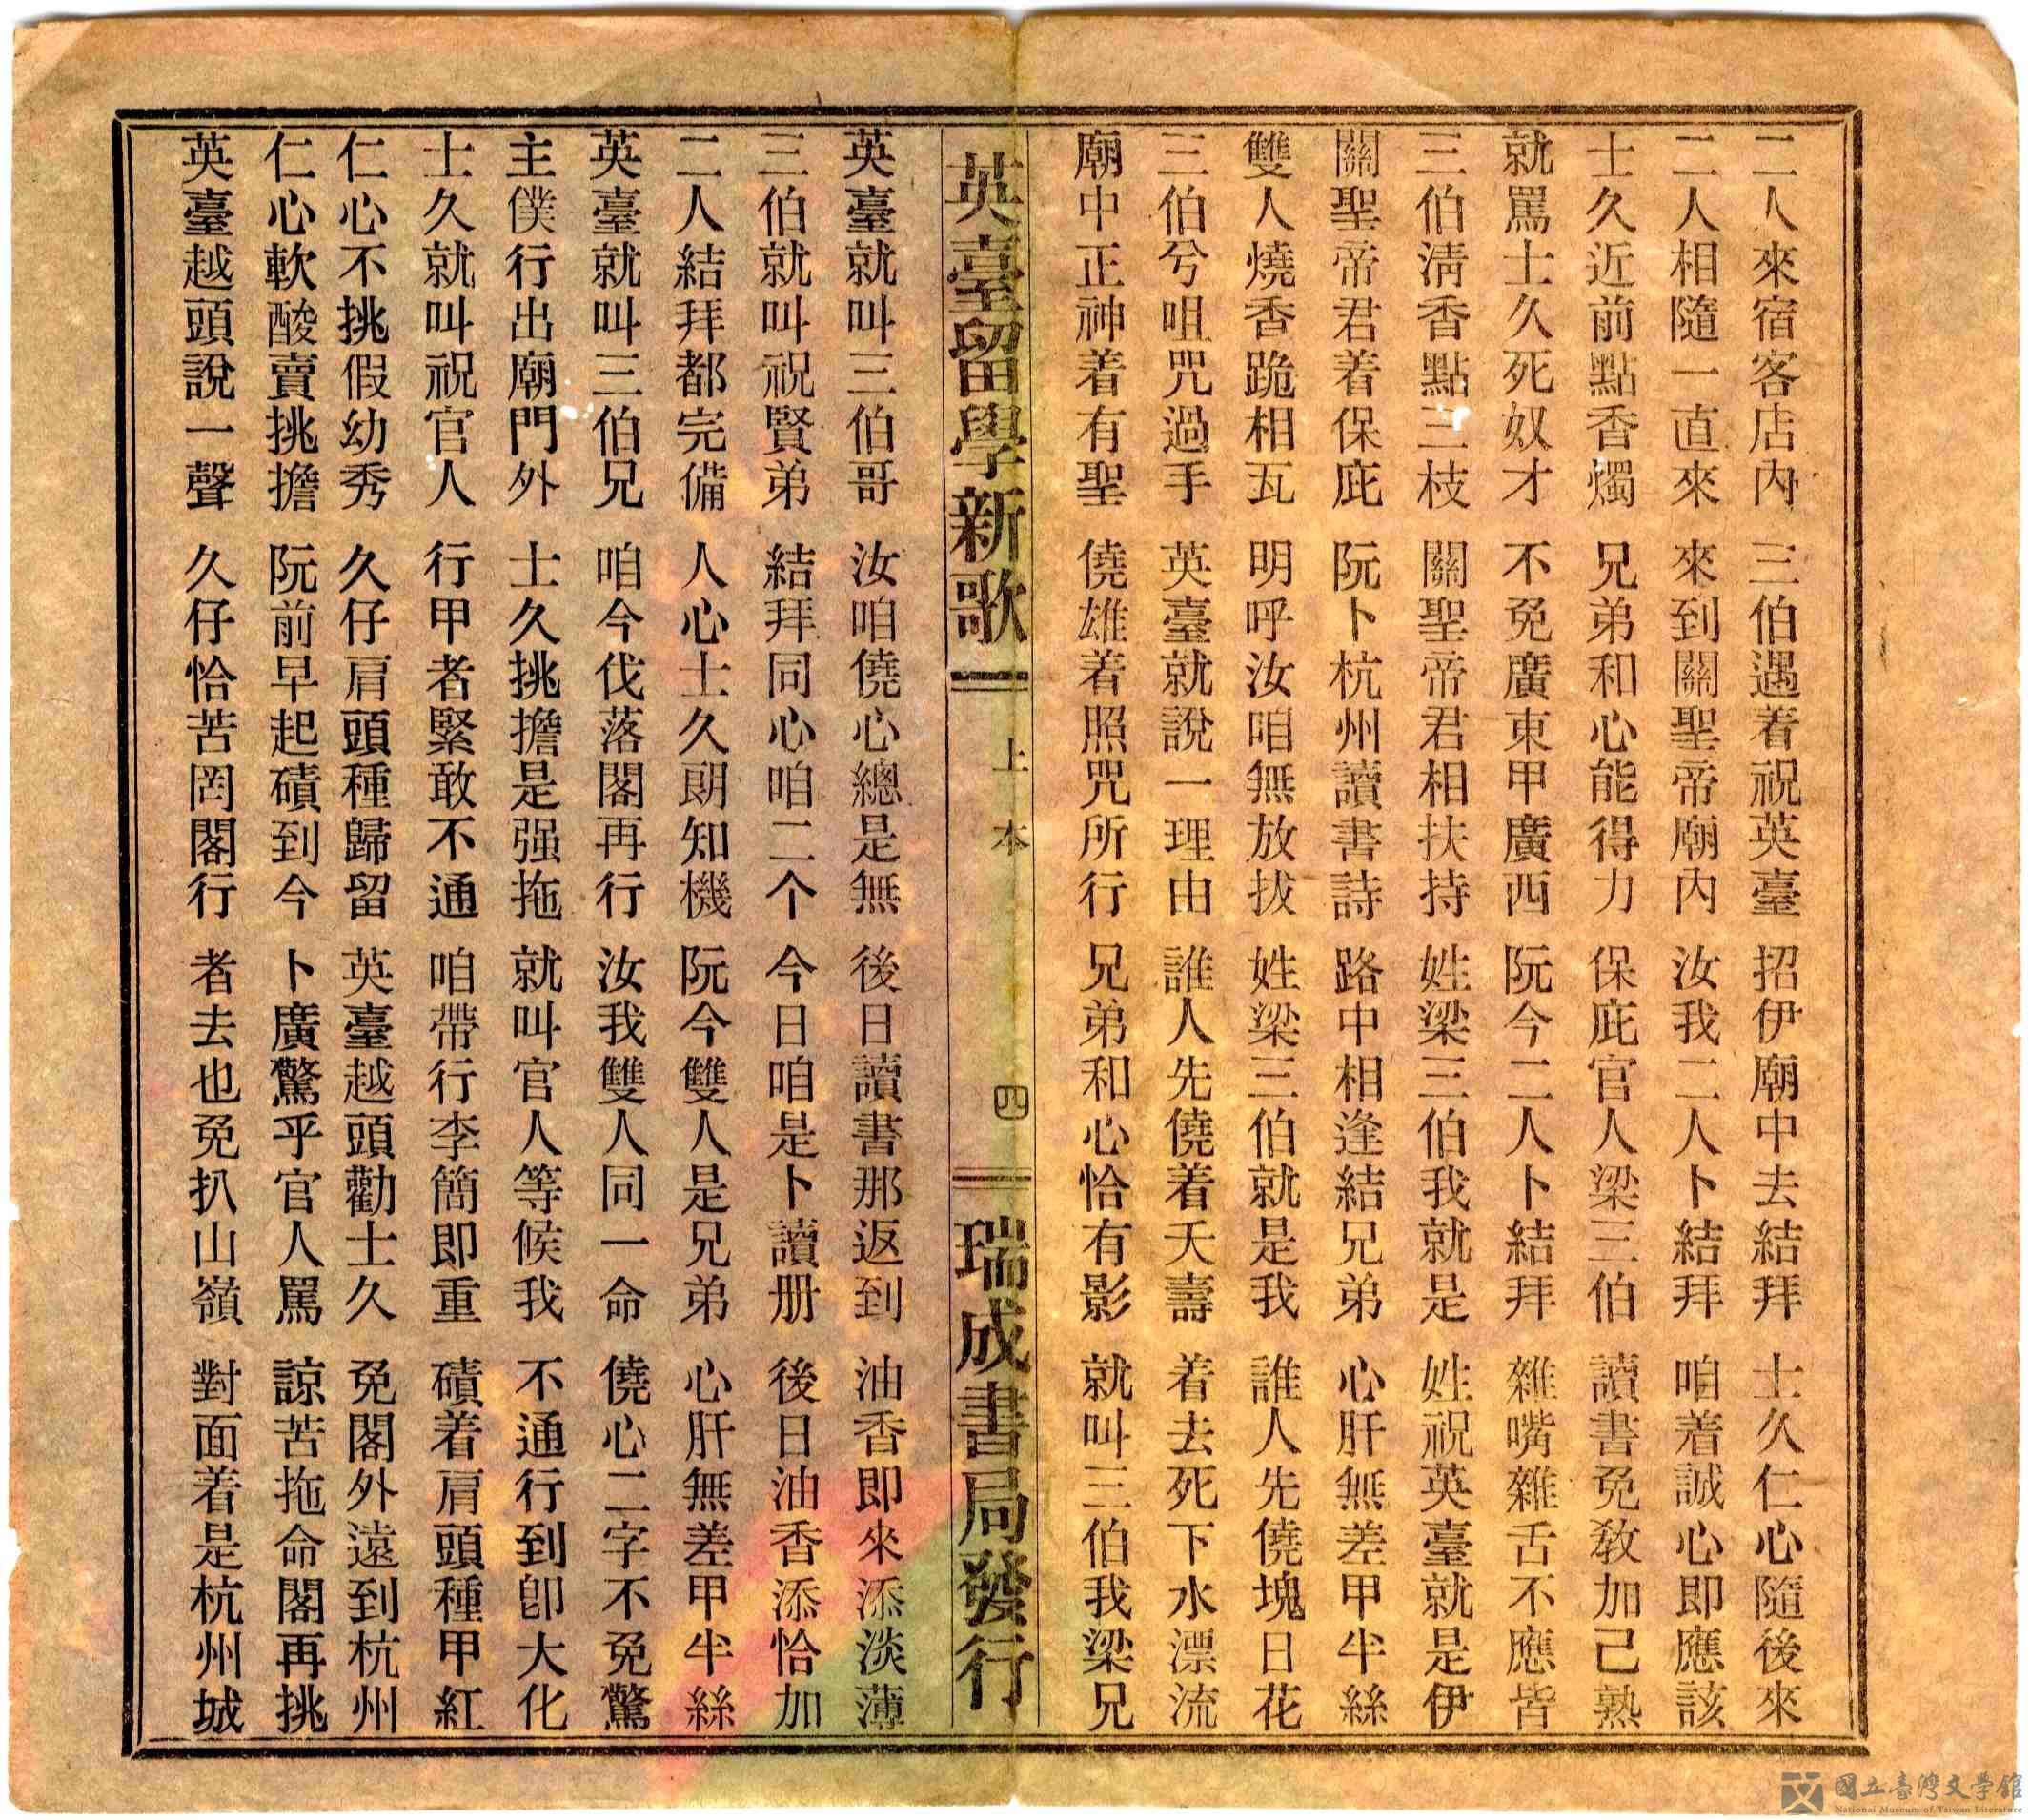 二人來宿客店內 三伯遇着祝英臺 招伊廟中去結拜 士久仁心隨後來
二人相隨一直來 來到關聖帝廟內 汝我二人卜結拜 咱着誠心即應該
士久近前點香燭 兄弟和心能得力 保庇官人梁三伯 讀書免教加己熟
就罵士久死奴才 不免廣東甲廣西 阮今二人卜結拜 雜嘴雜舌不應皆
三伯清香點三枝 關聖帝君相扶持 姓梁三伯我就是 姓祝英臺就是伊
關聖帝君着保庇 阮卜杭州讀書詩 路中相逢結兄弟 心肝無差甲半絲
雙人燒香跪相瓦 明呼汝咱無放拔 姓梁三伯就是我 誰人先僥塊日花
三伯兮咀咒過手 英臺就說一理由 誰人先僥着夭壽 着去死下水漂流
廟中正神着有聖 僥雄着照咒所行 兄弟和心恰有影 就叫三伯我梁兄
英臺留學新歌 上本 四 瑞成書局發行
英臺就叫三伯哥 汝咱僥心總是無 後日讀書那返到 油香即來添淡薄
三伯就叫祝賢弟 結拜同心咱二个 今日咱是卜讀册 後日油香添恰加
二人結拜都完備 人心士久朗知機 阮今雙人是兄弟 心肝無差甲半絲
英臺就叫三伯兄 咱今伐落閣再行 汝我雙人同一命 僥心二字不免驚
主僕行出廟門外 士久挑擔是强拖 就叫官人等候我 不通行到卽大化
士久就叫祝官人 行甲者緊敢不通 咱帶行李簡即重 磧着肩頭種甲紅
仁心不挑假幼秀 久仔肩頭種歸留 英臺越頭勸士久 免閣外遠到杭州
仁心軟酸賣挑擔 阮前早起磧到今 卜廣驚乎官人罵 諒苦拖命閣再挑
英臺越頭說一聲 久仔恰苦罔閣行 者去也免扒山嶺 對面着是杭州城
國立臺灣文學館
National Museum of Taiwan Literature